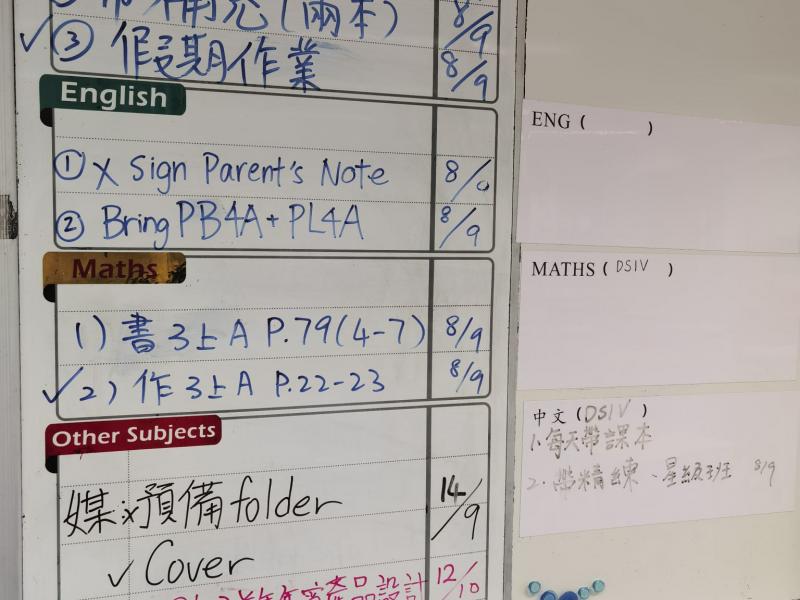 補充(兩本) 8/9
✓③ 假期作業 8/9
English
① X Sign Parent's Note 8/
② Bring PB4A + PL4A 8/9
Maths
1) 書 3上A P.79(4-7) 8/9
✓2) 作 3上A P.22-23 8/9
Other Subjects
媒 預備folder 14/9
✓ Cover
產品設計 12/10
ENG ( )
MATHS ( DSIV )
中文 ( DSIV )
1. 每天帶課本
2. 帶精練、星級班 8/9